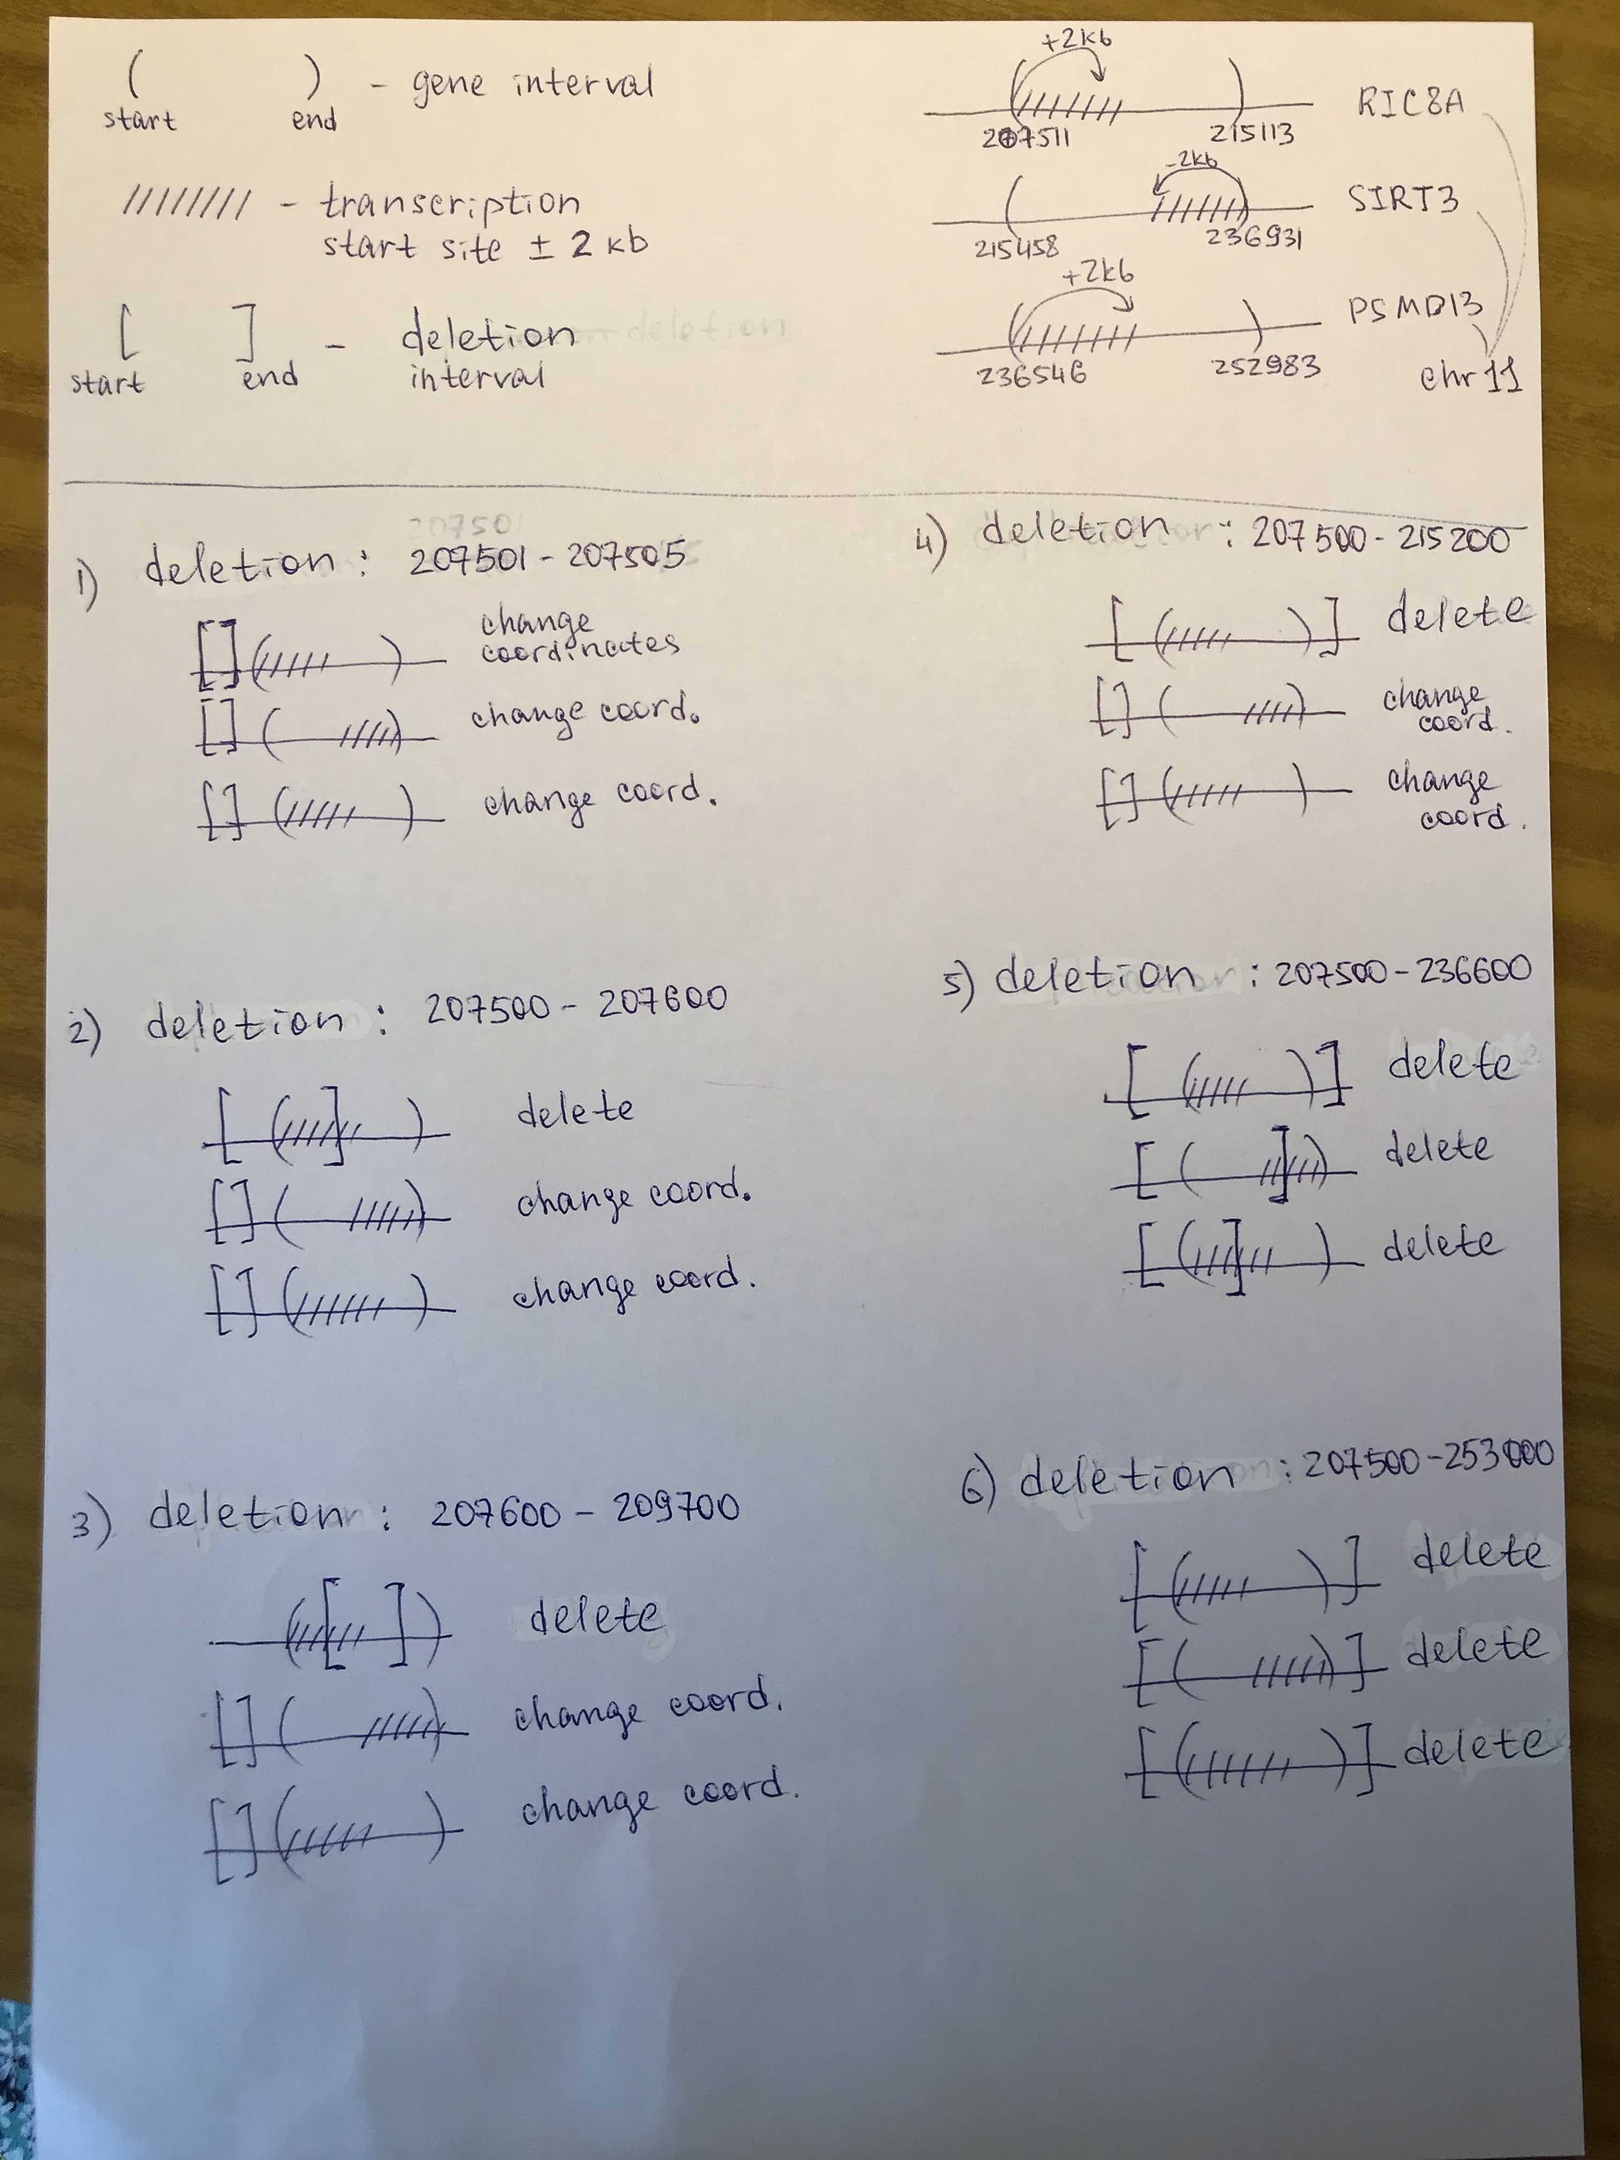 ( ) - gene interval
start end
//////// - transcription
start site ± 2 kb
[ ] - deletion
start end interval
+2kb
RIC8A
207511 215113
-2kb
SIRT3
215458 236931
+2kb
PSMD13
236546 252983
chr 11
1) deletion : 207501 - 207505
change
coordinates
change coord.
change coord.
2) deletion : 207500 - 207600
delete
change coord.
change coord.
3) deletion : 207600 - 209700
delete
change coord.
change coord.
4) deletion : 207500 - 215200
delete
change
coord.
change
coord.
5) deletion : 207500 - 236600
delete
delete
delete
6) deletion : 207500 - 253000
delete
delete
delete